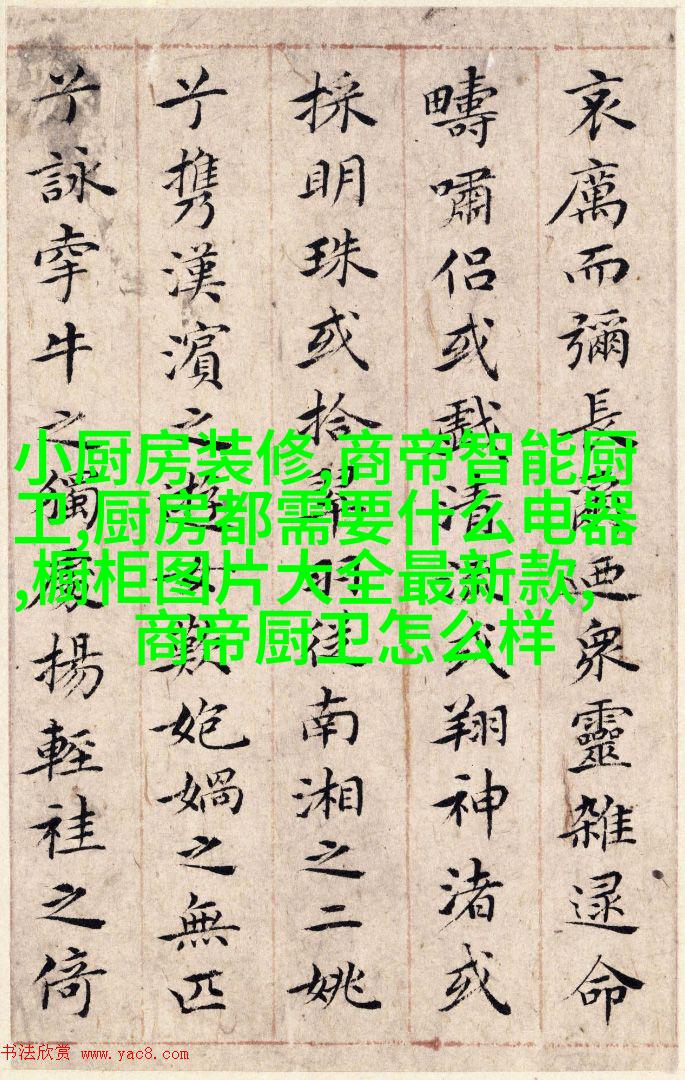 哀厲而彌長迺衆靈雜遝命
疇嘯侶或戲清流或翔神渚或
採明珠或拾翠羽從南湘之二姚
兮携漢濱之遊女歎媧之無匹
兮詠牽牛之獨處揚輕袿之倚
小厨房装修,商帝智能厨
卫,厨房都需要什么电器
,橱柜图片大全最新款,
商帝厨卫怎么样
书法欣赏 www.yac8.com